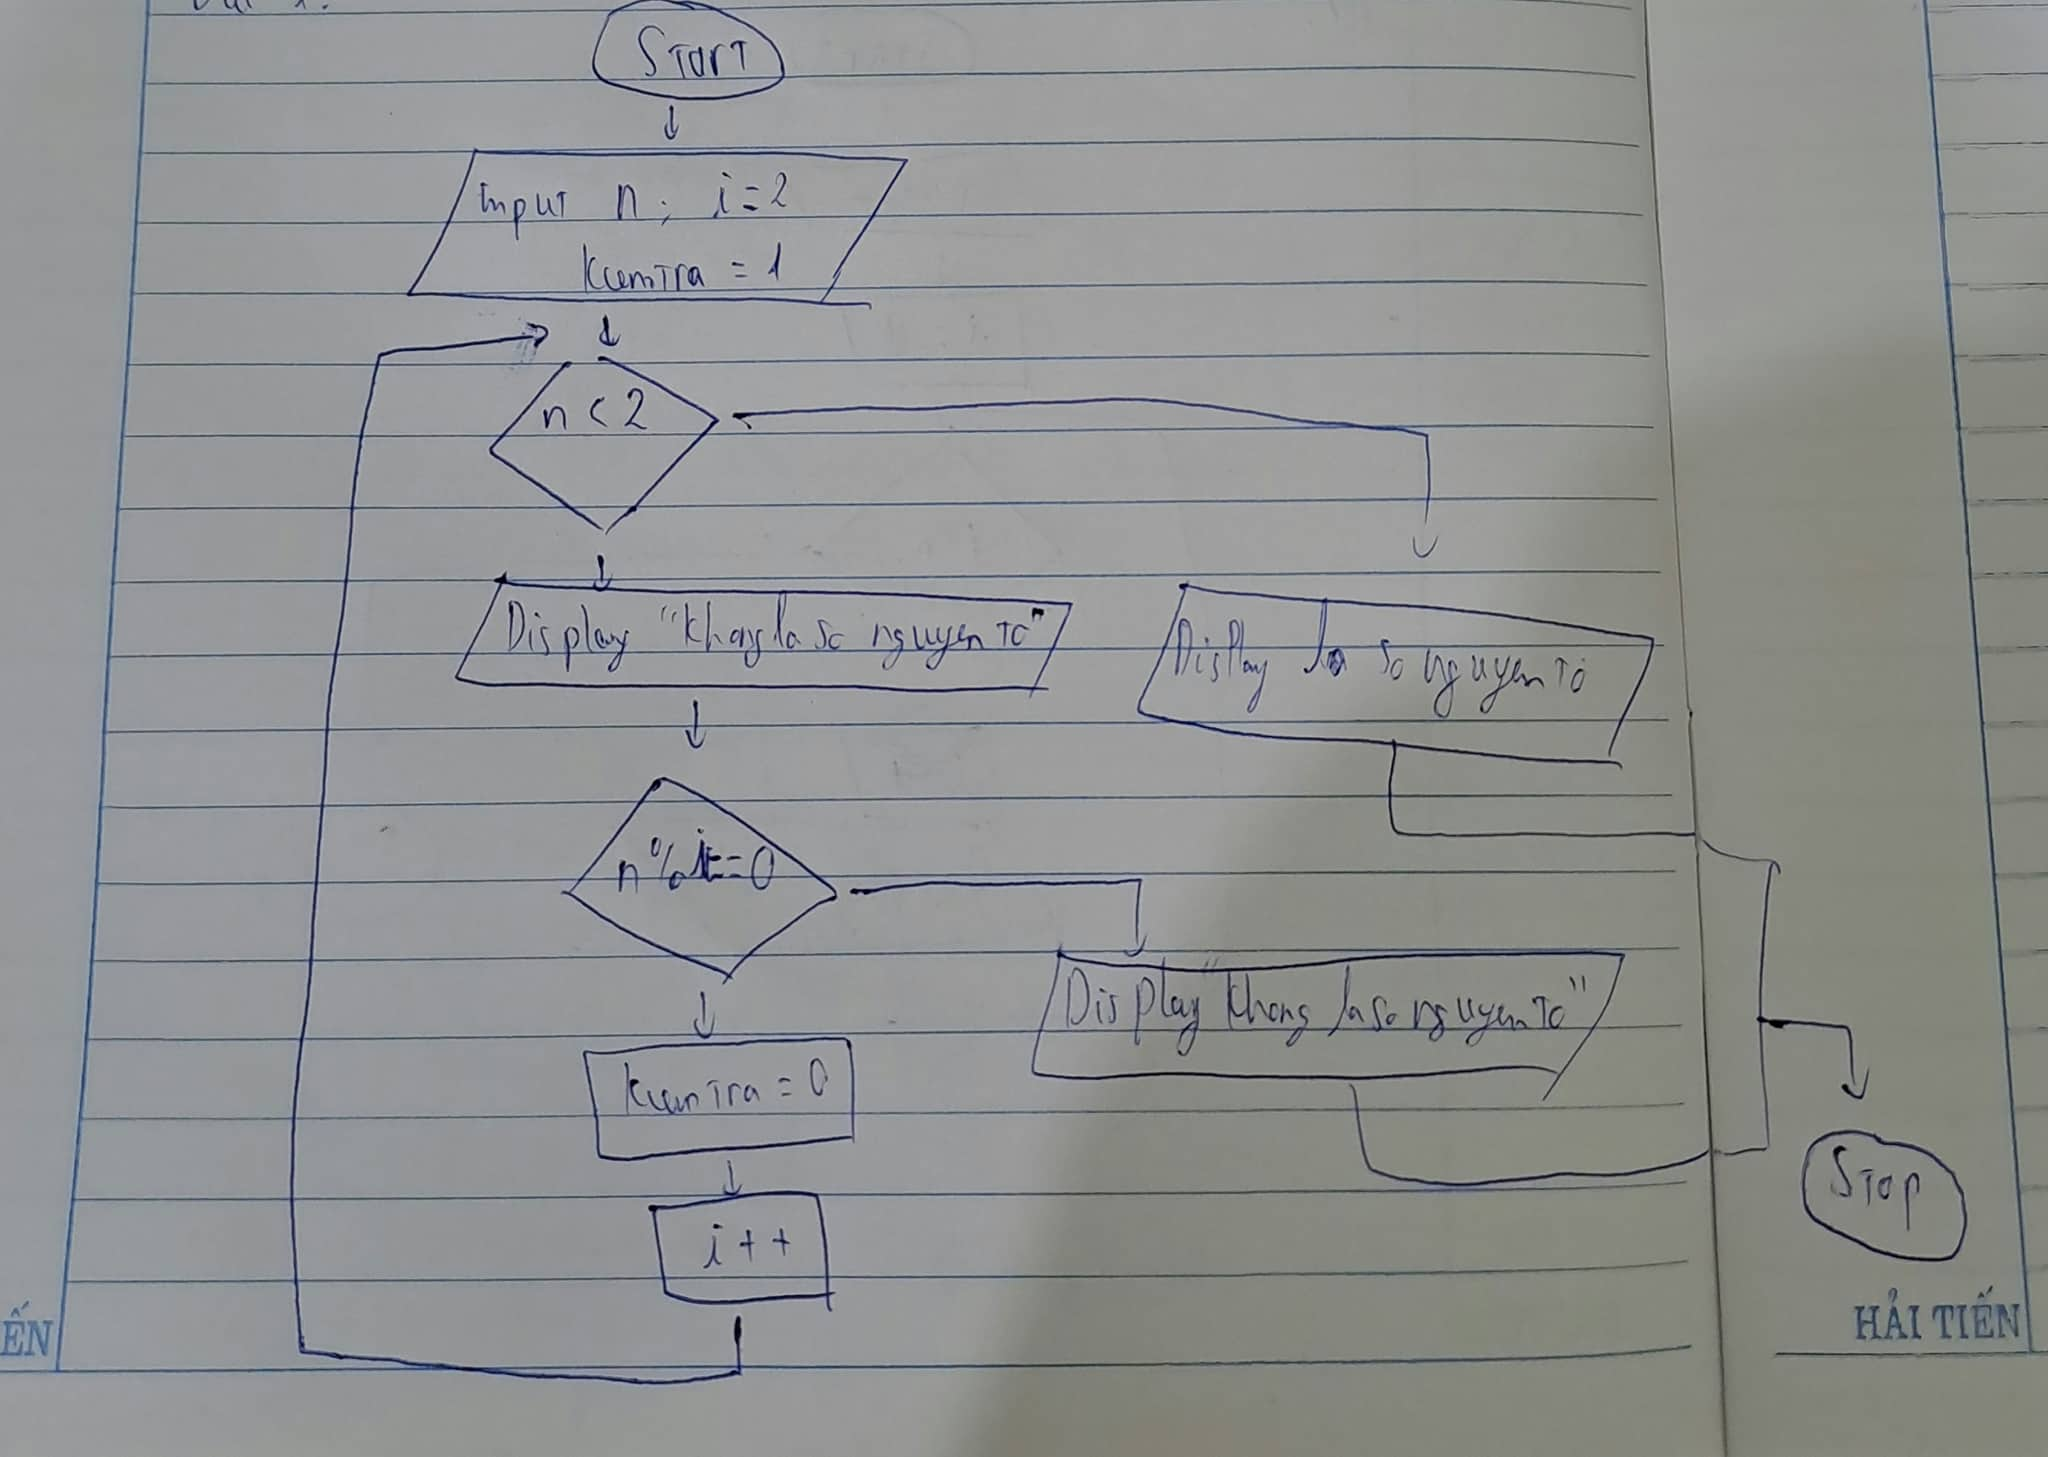 Start
Input n; i=2
kiemtra = 1
n < 2
Display "khong la so nguyen to"
Display la so nguyen to
n % i == 0
Display "khong la so nguyen to"
kiemtra = 0
i++
Stop
ẾN
HẢI TIẾN